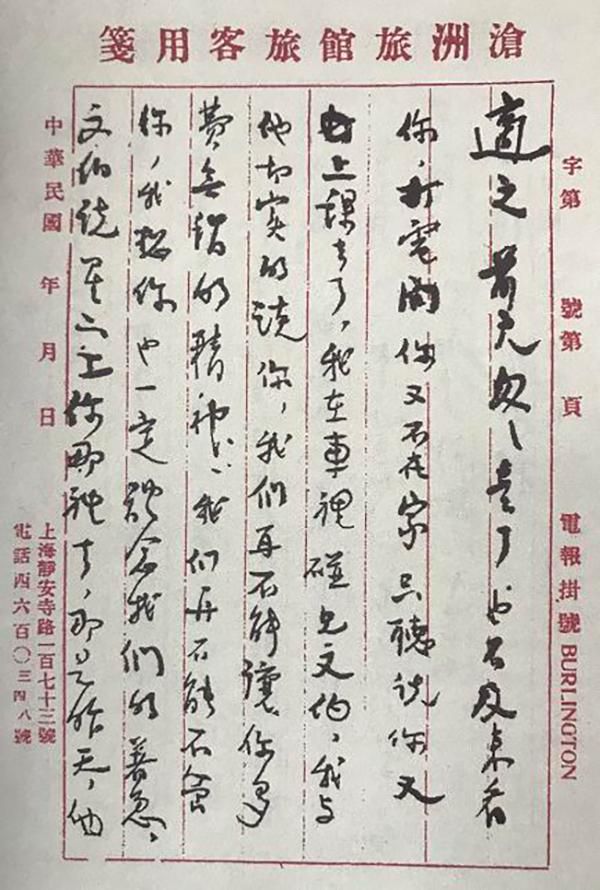 滄洲旅館旅客用箋
字第 號第 頁 電報掛號 BURLINGTON
適之 前天匆匆走了也不及來看
你,打電問你又不在家只聽說你又
上課去了,我在車裡碰見文伯,我与
他切实的說你,我們再不能讓你多
費無謂的精神、我們再不能不管
你,我想你也一定體念我們的善意。
文伯說星二上你那裡去,那是昨天,他
中華民國 年 月 日
上海靜安寺路一百七十三號
電話四六百〇三四八號